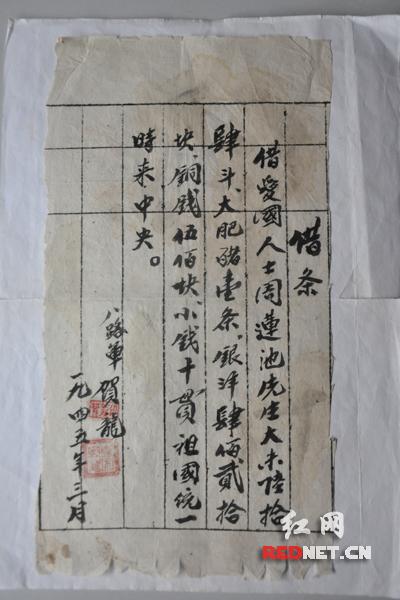 借条
借愛國人士周蓮池先生大米陸拾
肆斗、大肥豬壹条、銀洋肆佰貳拾
块、銅钱伍佰块、小钱十贯、祖國统一
時来中央。
八路軍 贺龍
一九四五年三月
红网
REDNET.CN